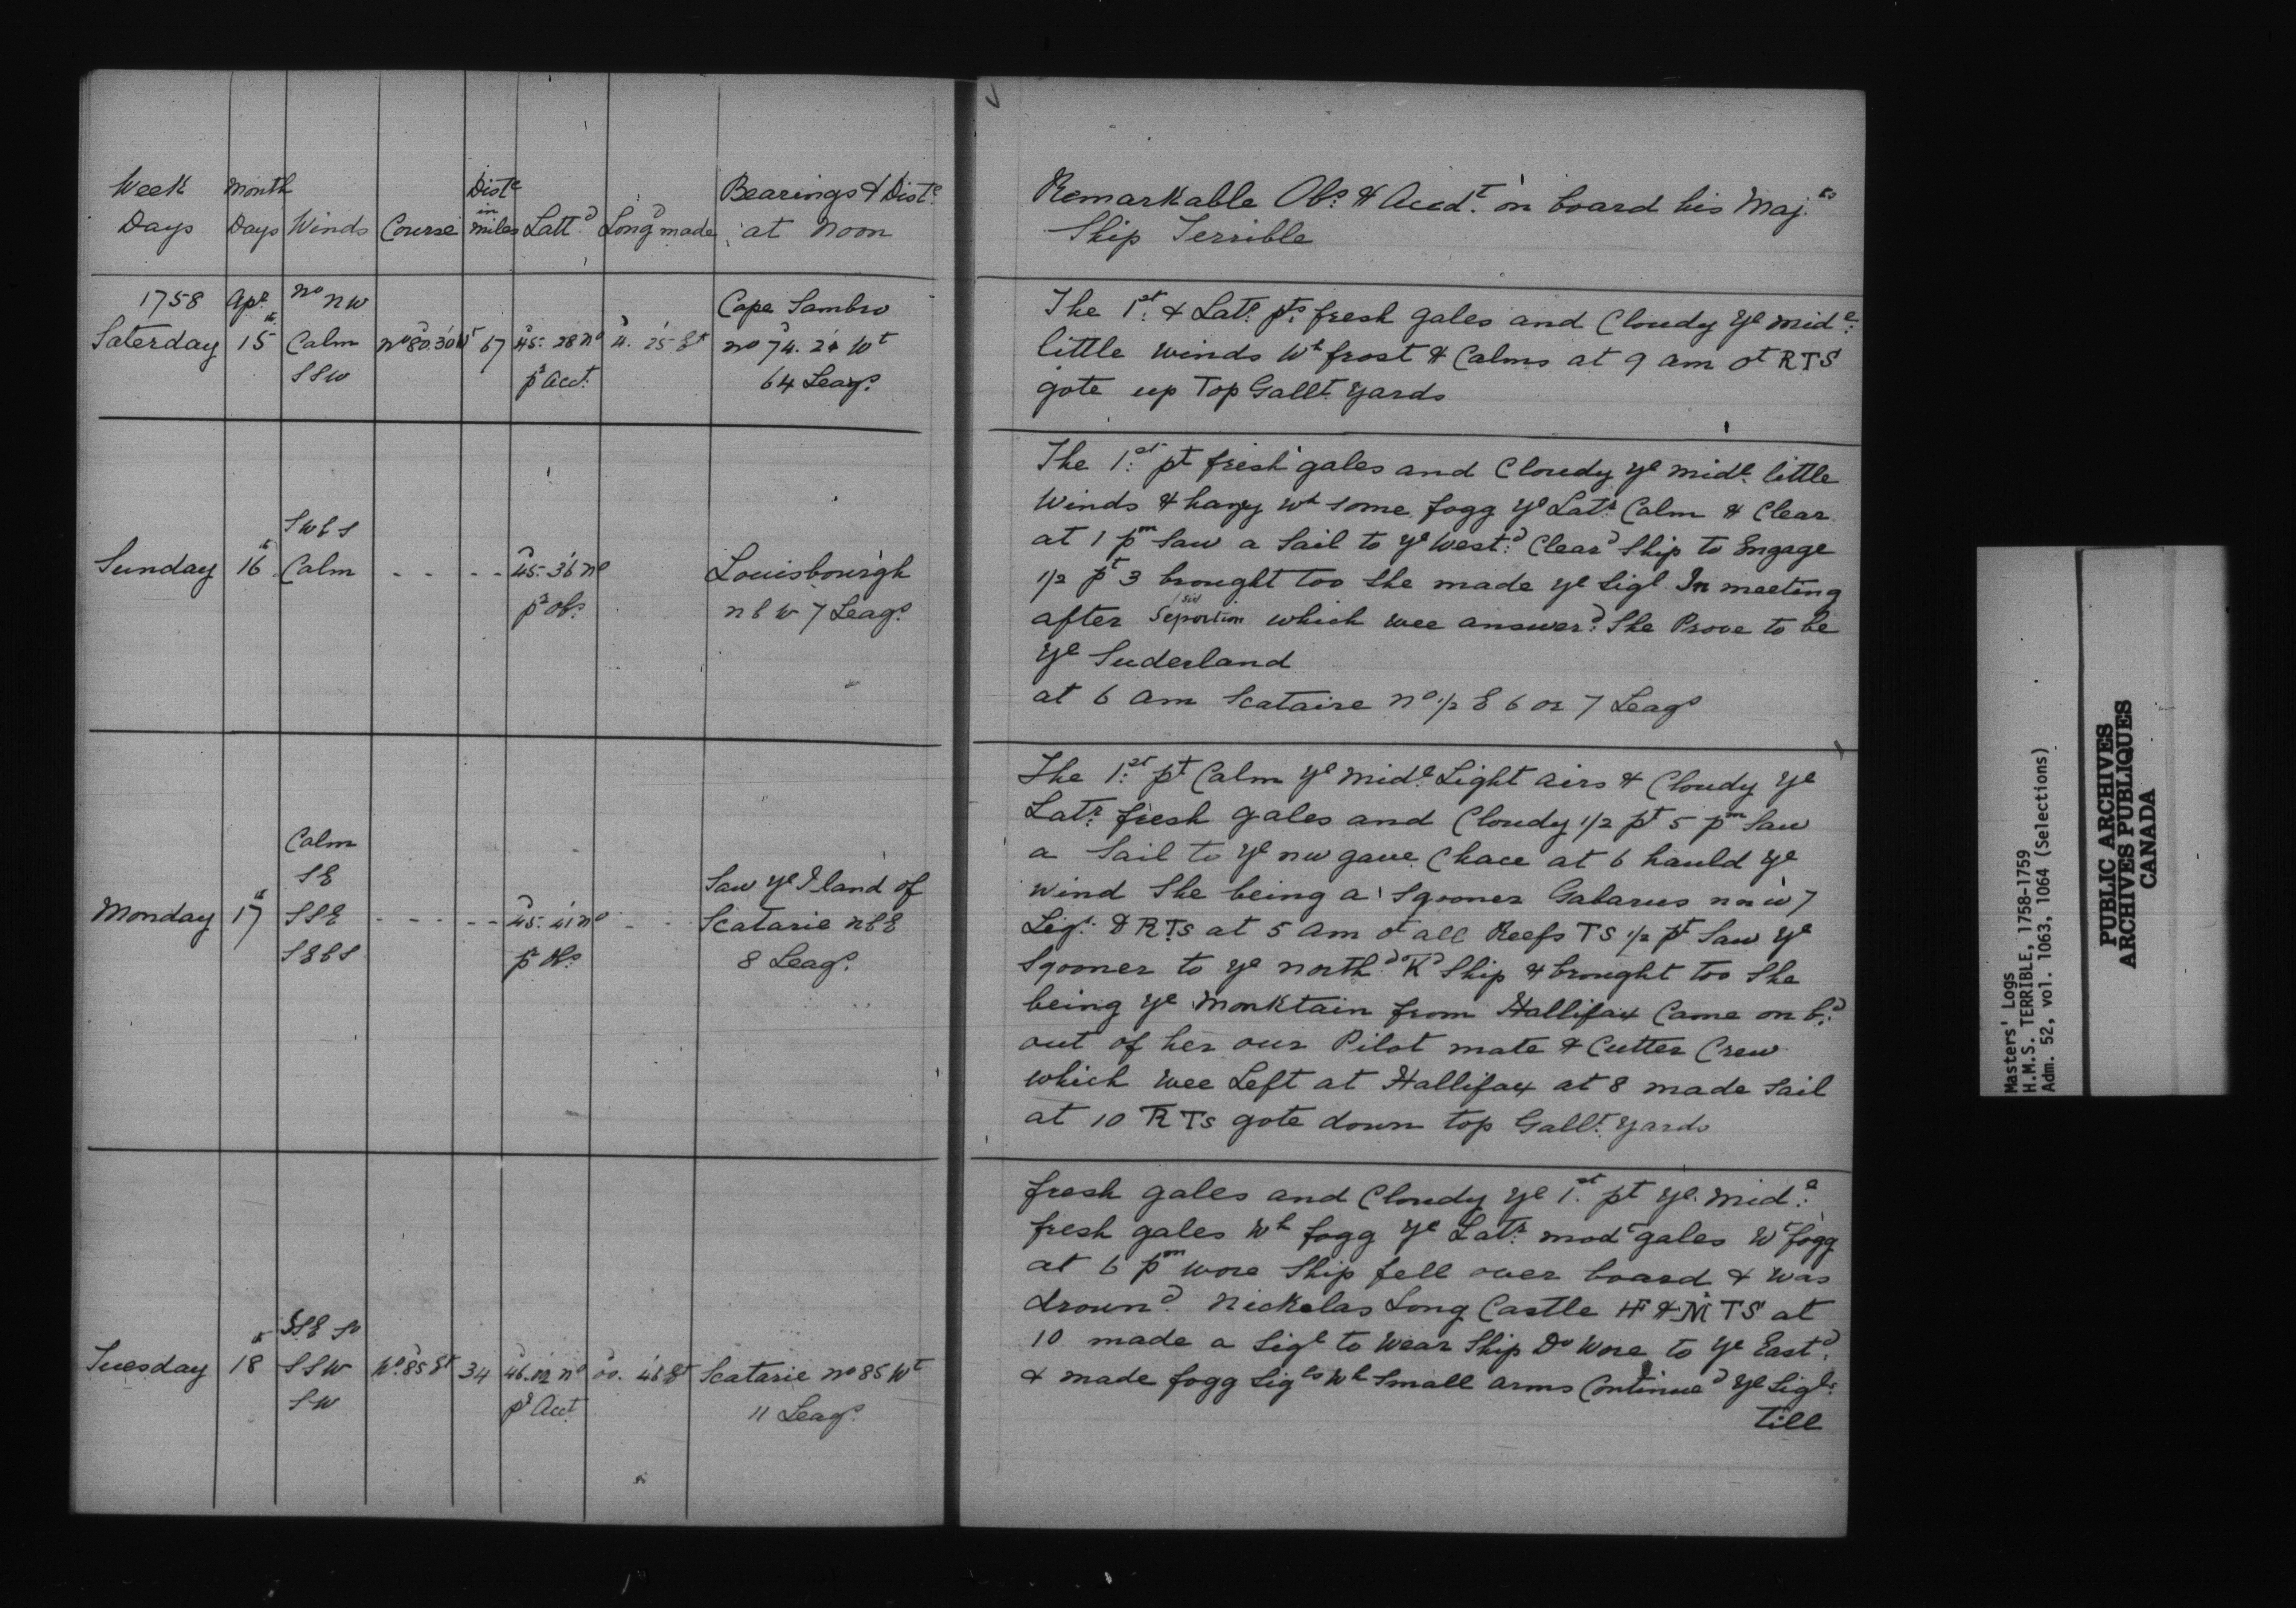 Week Month Dist.e Bearings & Dist.e
Days Days Winds Course in miles Latt.d Long.d made at Noon
1758 Apr. no nw Cape Sambro
Saterday 15th Calm no 80.30 Wt 67 45: 28 no 4. 25 Et no 74. 24 Wt
SSW pr Acct. 64 Leags.
SWbS
Sunday 16th Calm - - - - 45: 36 no Louisbourgh
pr Obs. nbw 7 Leags.
Calm
SE Saw ye Iland of
Monday 17th SSE - - - - - 45: 41 no - - Scatarie nbE
SEbS pr Obs 8 Leags.
SSE So
Tuesday 18th SSW No. 85 Et 34 46.02 no 00. 46 Et Scatarie no 85 Wt
SW pr Acct. 11 Leags.
Remarkable Obs. & Accdt. on board his Maj.ts
Ship Terrible
The 1st. & Latr. pts. fresh gales and Cloudy ye mide.
little winds wh frost & Calms at 9 am ot RTS
gote up Top Gallt. yards
The 1st. pt fresh gales and Cloudy ye midle. little
Winds & hazy wh some fogg ye Latr. Calm & Clear
at 1 pm saw a sail to ye West.d Cleard Ship to Engage
1/2 pt 3 brought too she made ye Sigl. In meeting
after Seportion which wee answerd. She Prove to be
ye Suderland
at 6 am Scataire no 1/2 E 6 or 7 Leags
The 1st. pt Calm ye midle. Light airs & Cloudy ye
Latr. fresh gales and Cloudy 1/2 pt 5 pm saw
a Sail to ye nw gave Chace at 6 hauld ye
wind She being a Sgooner Gabarus nnw 7
Ligs. & RTs at 5 am ot all Reefs TS 1/2 pt Saw ye
Sgooner to ye northd. Kd Ship & brought too She
being ye Monktain from Hallifax Came on b.d
out of her our Pilot mate & Cutter Crew
which wee Left at Hallifax at 8 made Sail
at 10 RTs gote down top Gallt. yards
fresh gales and Cloudy ye 1st. pt ye. mid.e
fresh gales wh fogg ye Latr. modt gales wt fogg
at 6 pm wore Ship fell over board & was
dround. Nickelas Long Castle HF & M TS at
10 made a Sigl to Wear Ship Do Wore to ye East.d
& made fogg Sigls wh small arms Continued ye Sigls.
till
Masters' Logs
H.M.S. TERRIBLE, 1758-1759
Adm. 52, vol. 1063, 1064 (Selections)
PUBLIC ARCHIVES
ARCHIVES PUBLIQUES
CANADA